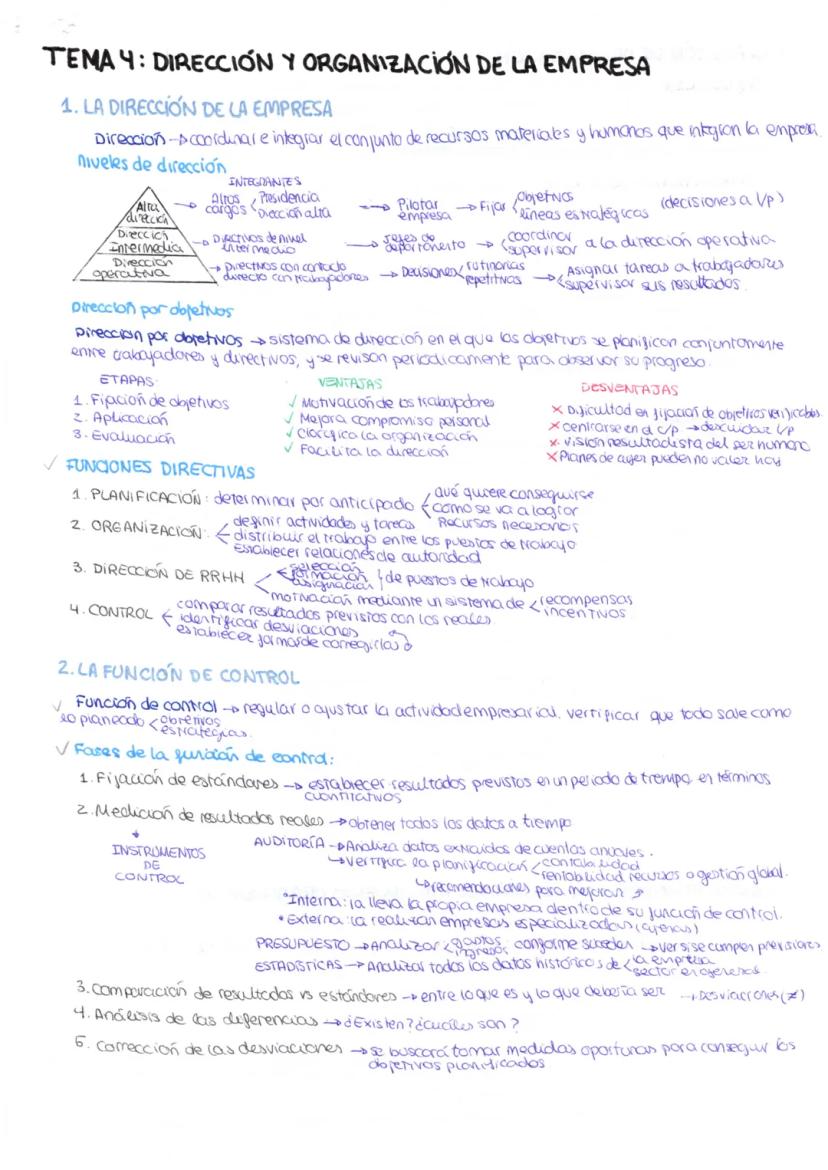 TEMA 4: DIRECCIÓN Y ORGANIZACIÓN DE LA EMPRESA
1. LA DIRECCIÓN DE LA EMPRESA
Dirección → coordinar e integrar el conjunto de recursos materiales y humanos que integran la empresa.
Niveles de dirección
INTEGRANTES
Alta dirección → Altos cargos < Presidencia / Dirección alta → Pilotar empresa → Fijar < Objetivos / líneas estratégicas (decisiones a l/p)
Dirección Intermedia → Directivos de nivel intermedio → Jefes de departamento → coordinar / supervisar a la dirección operativa
Dirección operativa → Directivos con contacto directo con trabajadores → Decisiones < rutinarias / repetitivas → Asignar tareas a trabajadores / supervisar sus resultados.
Dirección por objetivos
Dirección por objetivos → sistema de dirección en el que los objetivos se planifican conjuntamente
entre trabajadores y directivos, y se revisan periódicamente para observar su progreso.
ETAPAS
1. Fijación de objetivos
2. Aplicación
3. Evaluación
VENTAJAS
✓ Motivación de los trabajadores
✓ Mejora compromiso personal
✓ Clarifica la organización
✓ Facilita la dirección
DESVENTAJAS
× Dificultad en fijación de objetivos verificables.
× centrarse en el c/p → descuidar l/p
× visión resultadista del ser humano
× Planes de ayer pueden no valer hoy
✓ FUNCIONES DIRECTIVAS
1. PLANIFICACIÓN: determinar por anticipado < qué quiere conseguirse
cómo se va a lograr
Recursos necesarios
2. ORGANIZACIÓN: < definir actividades y tareas
distribuir el trabajo entre los puestos de trabajo
Establecer relaciones de autoridad
3. DIRECCIÓN DE RRHH < selección
formación
asignación } de puestos de trabajo
motivación mediante un sistema de < recompensas
incentivos
4. CONTROL < comparar resultados previstos con los reales
identificar desviaciones
establecer formas de corregirlas
2. LA FUNCIÓN DE CONTROL
✓ Función de control → regular o ajustar la actividad empresarial. Vertificar que todo sale como
lo planeado < objetivos
estrategias.
✓ Fases de la función de control:
1. Fijación de estándares → establecer resultados previstos en un periodo de tiempo, en términos
cuantitativos
2. Medición de resultados reales → obtener todos los datos a tiempo
INSTRUMENTOS
DE
CONTROL
AUDITORÍA → Analiza datos extraídos de cuentas anuales.
→ Vertifica la planificación < contabilidad
rentabilidad recursos o gestión global.
→ recomendaciones para mejorar
• Interna: la lleva la propia empresa dentro de su función de control.
• Externa: la realizan empresas especializadas (ajenas)
PRESUPUESTO → Analizar < gastos / ingresos conforme suceden → ver si se cumplen previsiones
ESTADÍSTICAS → Analizar todos los datos históricos de < la empresa
sector en general.
3. Comparación de resultados vs estándares → entre lo que es y lo que debería ser → Desviaciones (≠)
4. Análisis de las diferencias → ¿Existen? ¿cuáles son?
5. Corrección de las desviaciones → se buscará tomar medidas oportunas para conseguir los
objetivos planificados